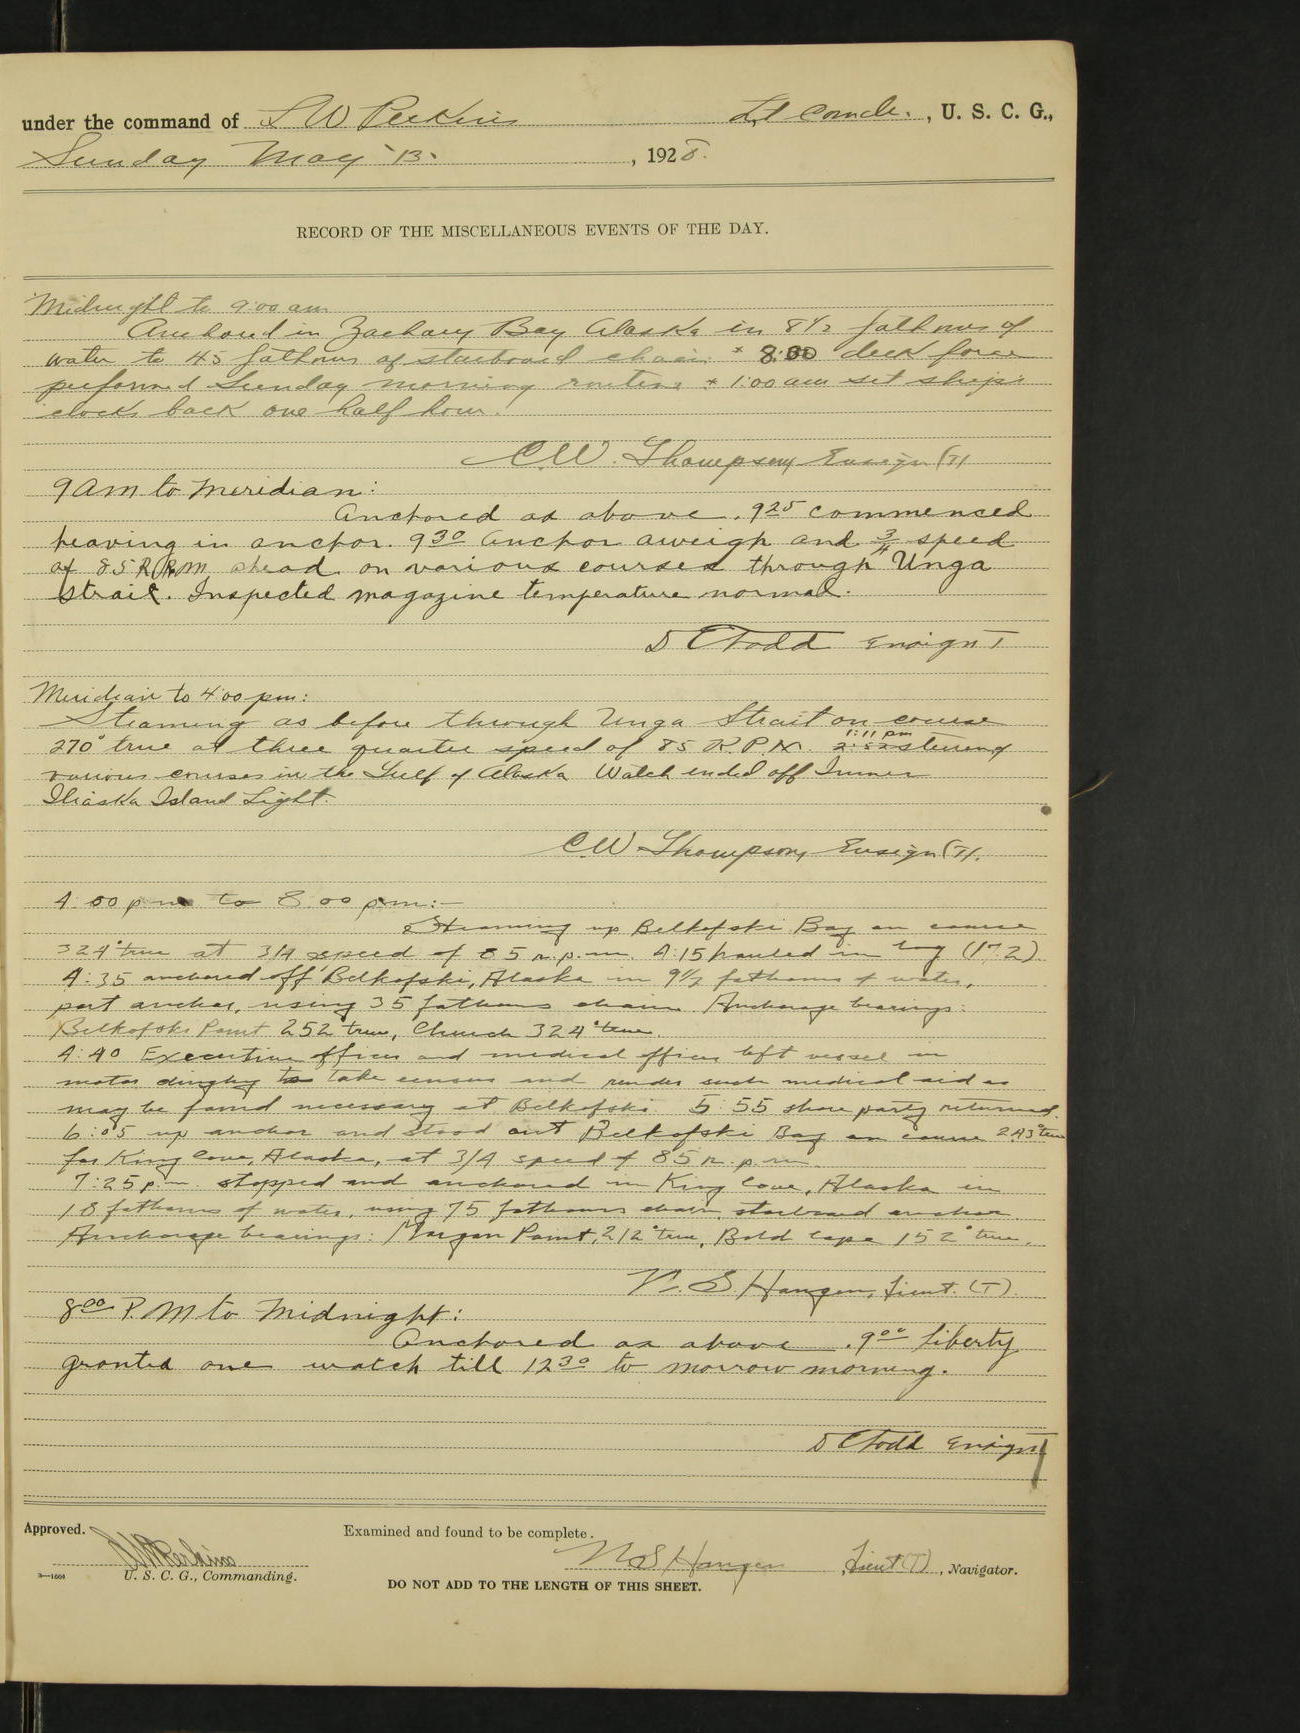 under the command of S W Perkins Lt Comdr. , U. S. C. G.,
Sunday May 13. , 1928.
RECORD OF THE MISCELLANEOUS EVENTS OF THE DAY.
Midnight to 9:00 am
Anchored in Zachary Bay Alaska in 8 1/2 fathoms of
water to 45 fathoms of starboard chain. * 8:00 deck force
performed Sunday morning routine * 1:00 am set ship's
clocks back one half hour.
C.W. Thompson, Ensign (T)
9 am to meridian:
Anchored as above. 9 25 commenced
heaving in anchor. 9 30 Anchor aweigh and 3/4 speed
of 85 R.P.M ahead on various courses through Unga
Strait. Inspected magazine temperature normal.
D C Todd Ensign T
Meridian to 4:00 pm:
Steaming as before through Unga Strait on course
270° true at three quarter speed of 85 R.P.M. 1:11 pm steering
various courses in the Gulf of Alaska Watch ended off Inner
Iliaska Island Light.
C.W Thompson, Ensign (T).
4:00 p m to 8.00 p.m:-
Steaming up Belkofski Bay on course
324° true at 3/4 speed of 85 r.p.m. 4:15 hauled in log (17.2)
4:35 anchored off Belkofski, Alaska in 9 1/2 fathoms of water,
port anchor, using 35 fathoms chain. Anchorage bearings:
Belkofski Point 252° true, Church 324° true.
4:40 Executive officer and medical officer left vessel in
motor dinghy to take census and render such medical aid as
may be found necessary at Belkofski. 5:55 shore party returned.
6:05 up anchor and stood out Belkofski Bay on course 243° true
for King Cove, Alaska, at 3/4 speed of 85 r.p.m.
7:25 p.m. stopped and anchored in King Cove, Alaska in
18 fathoms of water, using 75 fathoms chain, starboard anchor.
Anchorage bearings: Morgan Point, 212° true, Bold Cape 152° true.
N. S Haugen, Lieut. (T)
8 00 P.M to Midnight:
Anchored as above. 9 00 liberty
granted one watch till 12 30 to morrow morning.
D C Todd Ensign T
Approved. Examined and found to be complete.
S W Perkins N S Haugen , Lieut (T) , Navigator.
3—1664 U. S. C. G., Commanding.
DO NOT ADD TO THE LENGTH OF THIS SHEET.